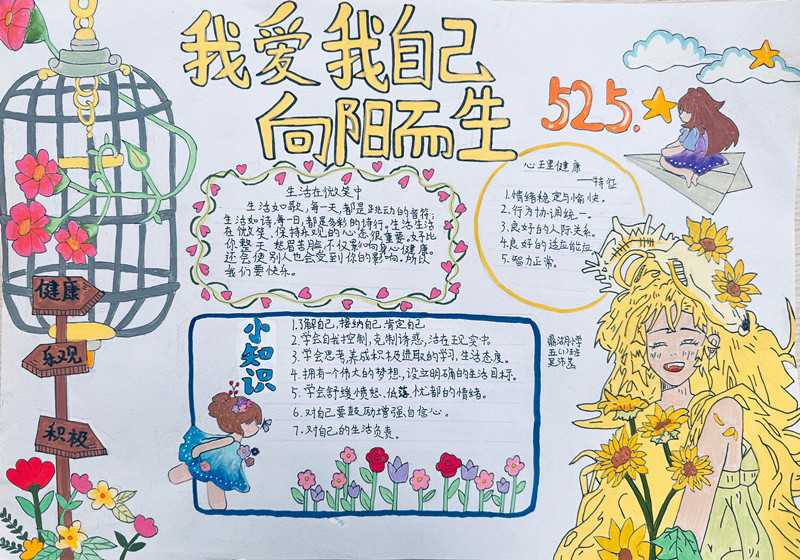 我爱我自己
向阳而生
525.
生活在微笑中
生活如歌,每一天,都是跳动的音符;
生活如诗,每一日,都是多彩的诗行。生活生活
在微笑,保持乐观的心态很重要。好比
你整天愁眉苦脸,不仅影响身心健康。
还会使别人也会受到你的影响。所以
我们要快乐。
心理健康
——特征
1.情绪稳定与愉快。
2.行为协调统一。
3.良好的人际关系。
4.良好的适应能应
5.智力正常。
健康
乐观
积极
小知识
1.了解自己,接纳自己,肯定自己
2.学会自我控制,克制诱惑,活在现实中.
3.学会思考,养成积极进取的学习、生活态度。
4.拥有一个伟大的梦想,设立明确的生活目标。
5.学会舒缓愤怒、低落、忧郁的情绪。
6.对自己要鼓励增强自信心。
7.对自己的生活负责。
湖小学
五(1)班